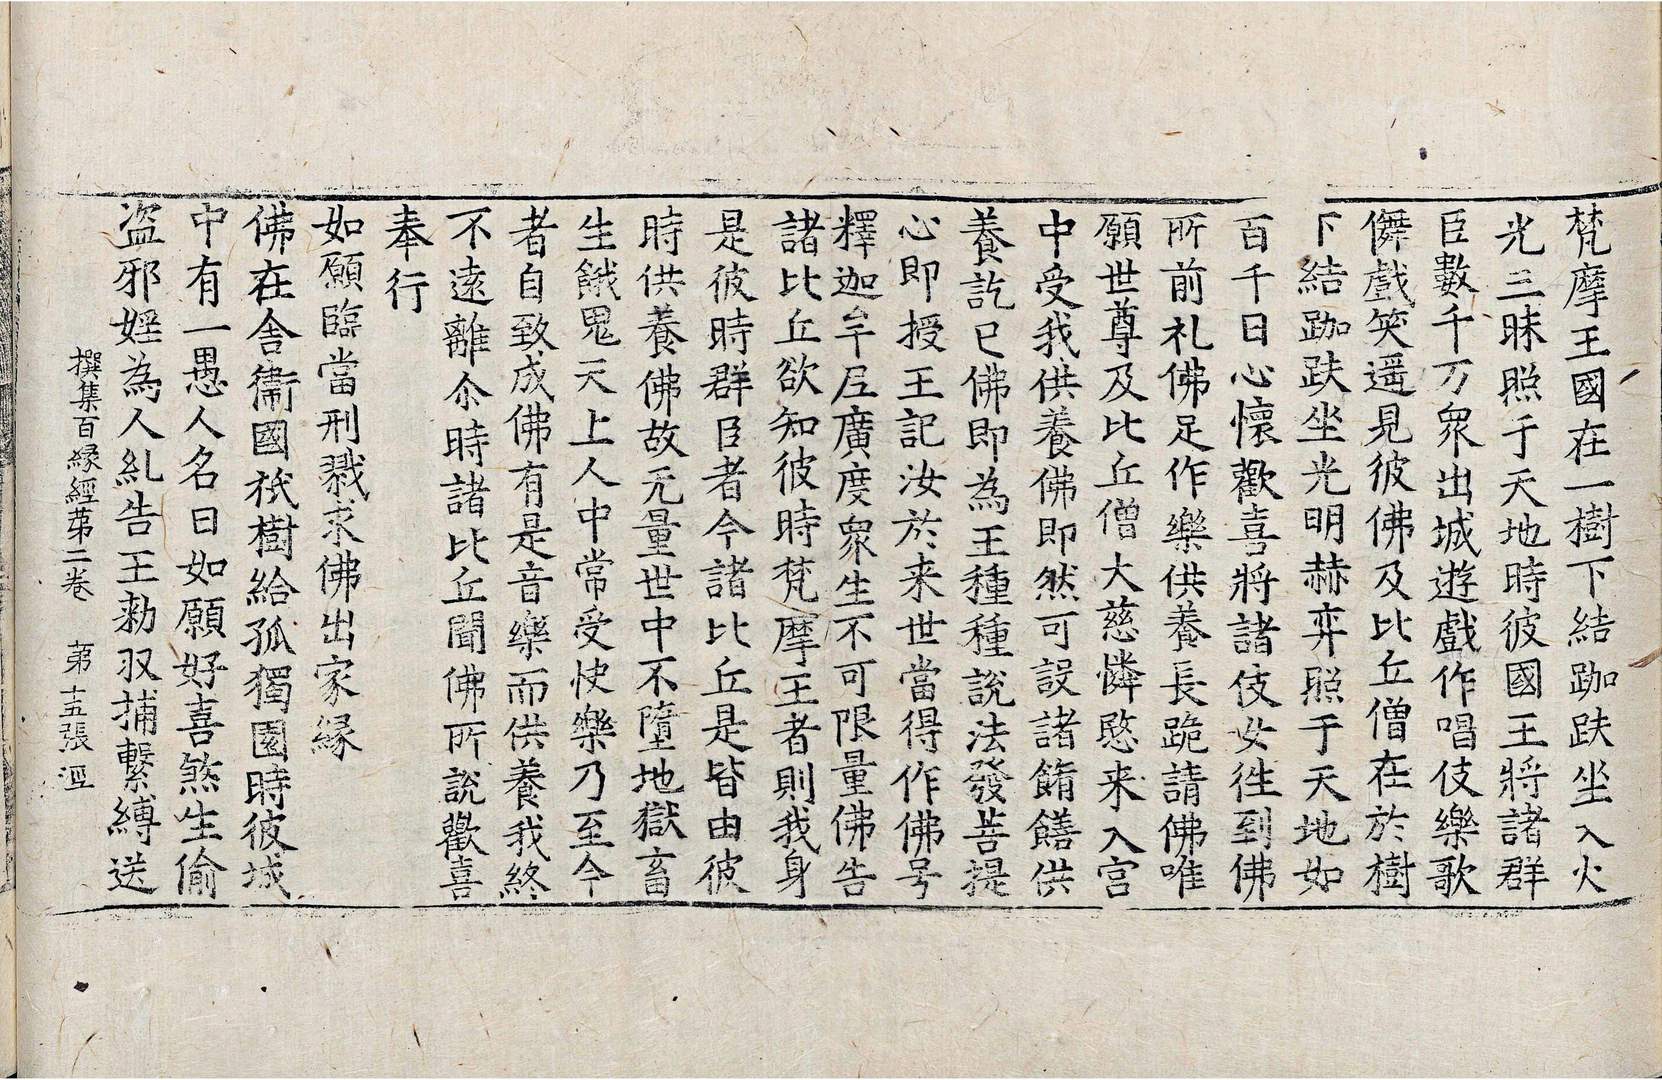 梵摩王國在一樹下結跏趺坐入火
光三昧照于天地時彼國王將諸群
臣數千万衆出城遊戲作唱伎樂歌
儛戲笑遥見彼佛及比丘僧在於樹
下結跏趺坐光明赫弈照于天地如
百千日心懷歡喜將諸伎女徃到佛
所前礼佛足作樂供養長跪請佛唯
願世尊及比丘僧大慈憐愍来入宫
中受我供養佛即然可設諸餚饍供
養訖已佛即為王種種說法發菩提
心即授王記汝於来世當得作佛号
釋迦牟尼廣度衆生不可限量佛告
諸比丘欲知彼時梵摩王者則我身
是彼時群臣者今諸比丘是皆由彼
時供養佛故无量世中不墮地獄畜
生餓鬼天上人中常受快樂乃至今
者自致成佛有是音樂而供養我終
不遠離尒時諸比丘聞佛所說歡喜
奉行
如願臨當刑戮求佛出家縁
佛在舎衞國祇樹給孤獨園時彼城
中有一愚人名曰如願好喜煞生偷
盗邪婬為人糺告王勑収捕繫縛送
撰集百縁經苐二卷　苐十五張　涇